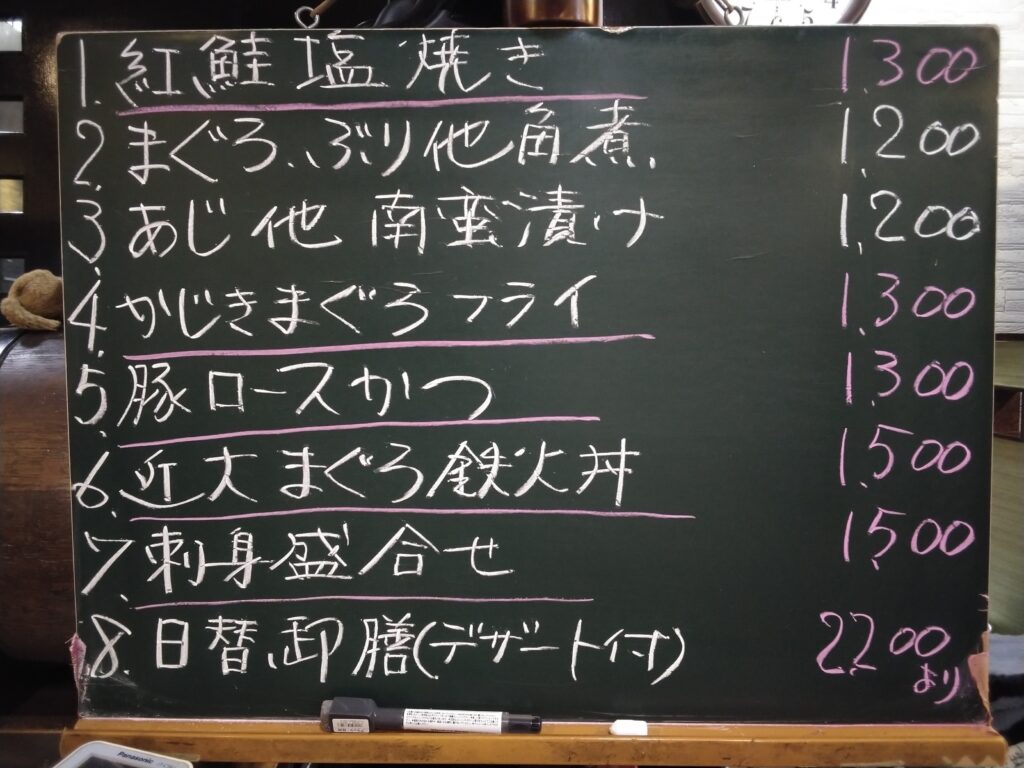 1. 紅鮭塩焼き 1,300
2. まぐろ、ぶり他角煮 1,200
3. あじ他南蛮漬け 1,200
4. かじきまぐろフライ 1,300
5. 豚ロースかつ 1,300
6. 近大まぐろ鉄火丼 1,500
7. 刺身盛合せ 1,500
8. 日替御膳(デザート付) 2,200
より
Panasonic